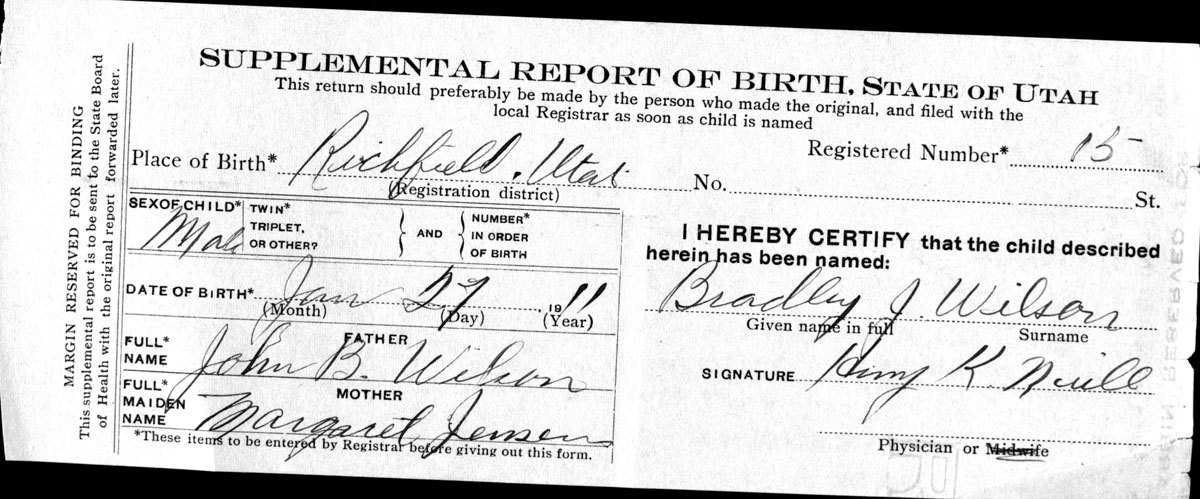 MARGIN RESERVED FOR BINDING
This supplemental report is to be sent to the State Board
of Health with the original report forwarded later.
SUPPLEMENTAL REPORT OF BIRTH, STATE OF UTAH
This return should preferably be made by the person who made the original, and filed with the
local Registrar as soon as child is named
Registered Number* 15
Place of Birth* Richfield, Utah No. St.
(Registration district)
SEX OF CHILD* Male
TWIN* TRIPLET, OR OTHER? } AND { NUMBER* IN ORDER OF BIRTH
DATE OF BIRTH* Jan 27 1911
(Month) (Day) (Year)
FATHER
FULL* NAME John B. Wilson
MOTHER
FULL* MAIDEN NAME Margaret Jensen
*These items to be entered by Registrar before giving out this form.
I HEREBY CERTIFY that the child described
herein has been named:
Bradley J. Wilson
Given name in full Surname
SIGNATURE K. Neill
Physician or Midwife